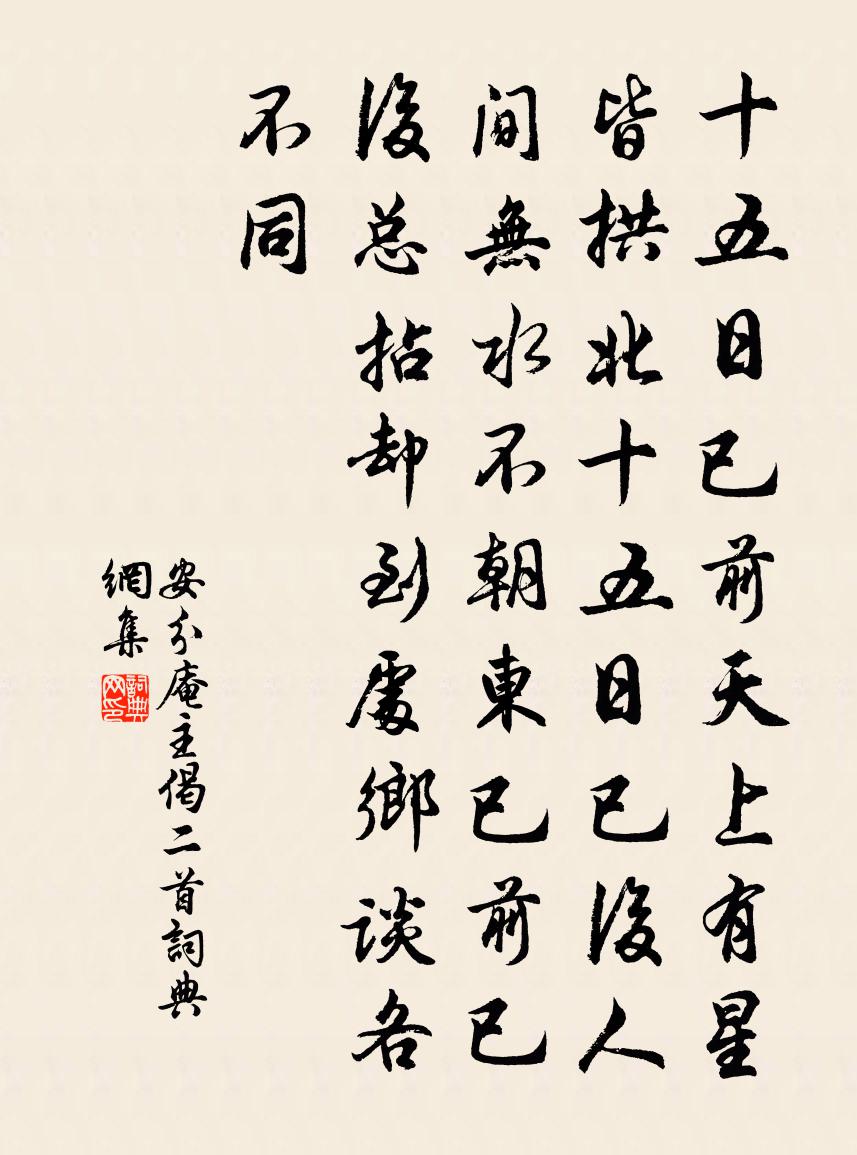 十五日已前天上有星
皆拱北十五日已後人
間無水不朝東已前已
後总拈却到處鄉談各
不同
安分庵主偈二首詞典
網集
詞典
网印